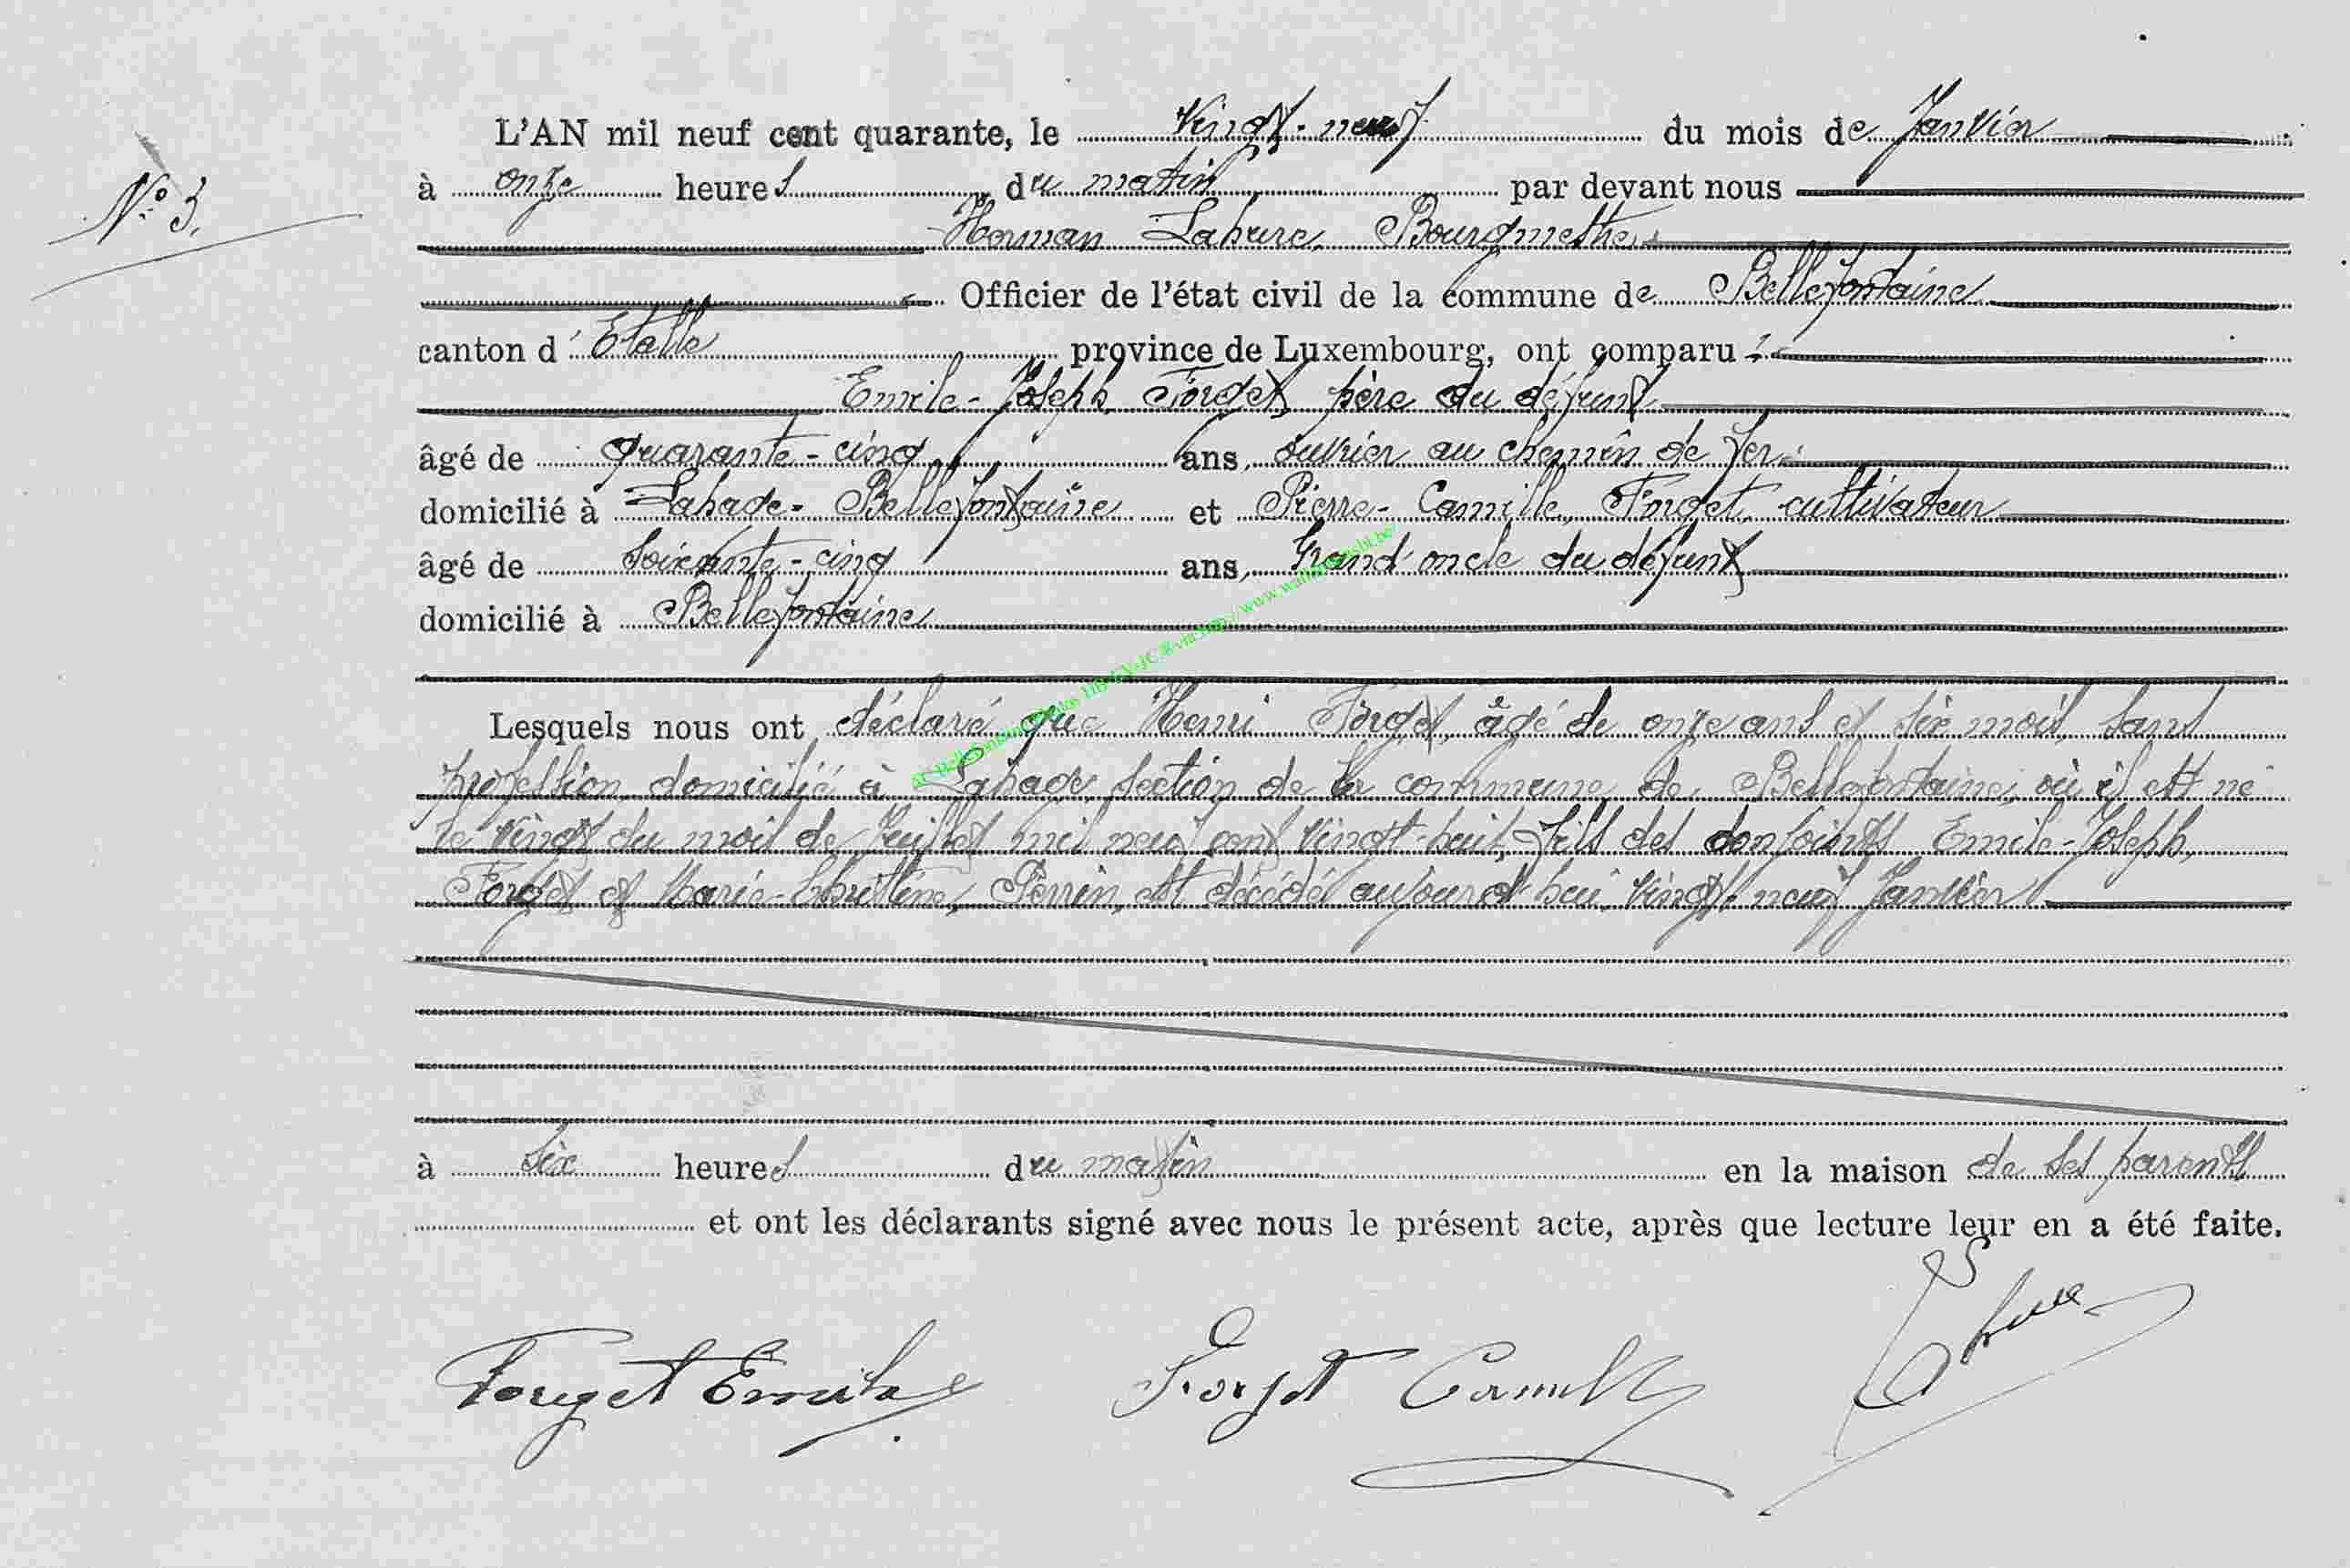 L'AN mil neuf cent quarante, le vingt-neuf du mois de Janvier
N° 3.
à onze heures du matin par devant nous
Herman Lahure, Bourgmestre
Officier de l'état civil de la commune de Bellefontaine
canton d'Etalle province de Luxembourg, ont comparu :
Emile-Joseph Forget père du défunt
âgé de quarante-cinq ans, ouvrier au chemin de fer
domicilié à Lahage-Bellefontaine et Pierre-Camille Forget, cultivateur
âgé de soixante-cinq ans, Grand'oncle du défunt
domicilié à Bellefontaine
Lesquels nous ont déclaré que Henri Forget, âgé de onze ans et six mois, sans
profession domicilié à Lahage, section de la commune de Bellefontaine, où il est né
le vingt du mois de Juillet mil neuf cent vingt-huit, fils des conjoints Emile-Joseph
Forget et Marie-Christine, Perrin, est décédé aujourd'hui vingt-neuf Janvier
à six heures du matin en la maison de ses parents
et ont les déclarants signé avec nous le présent acte, après que lecture leur en a été faite.
Forget Emile Forget Camille Lahure